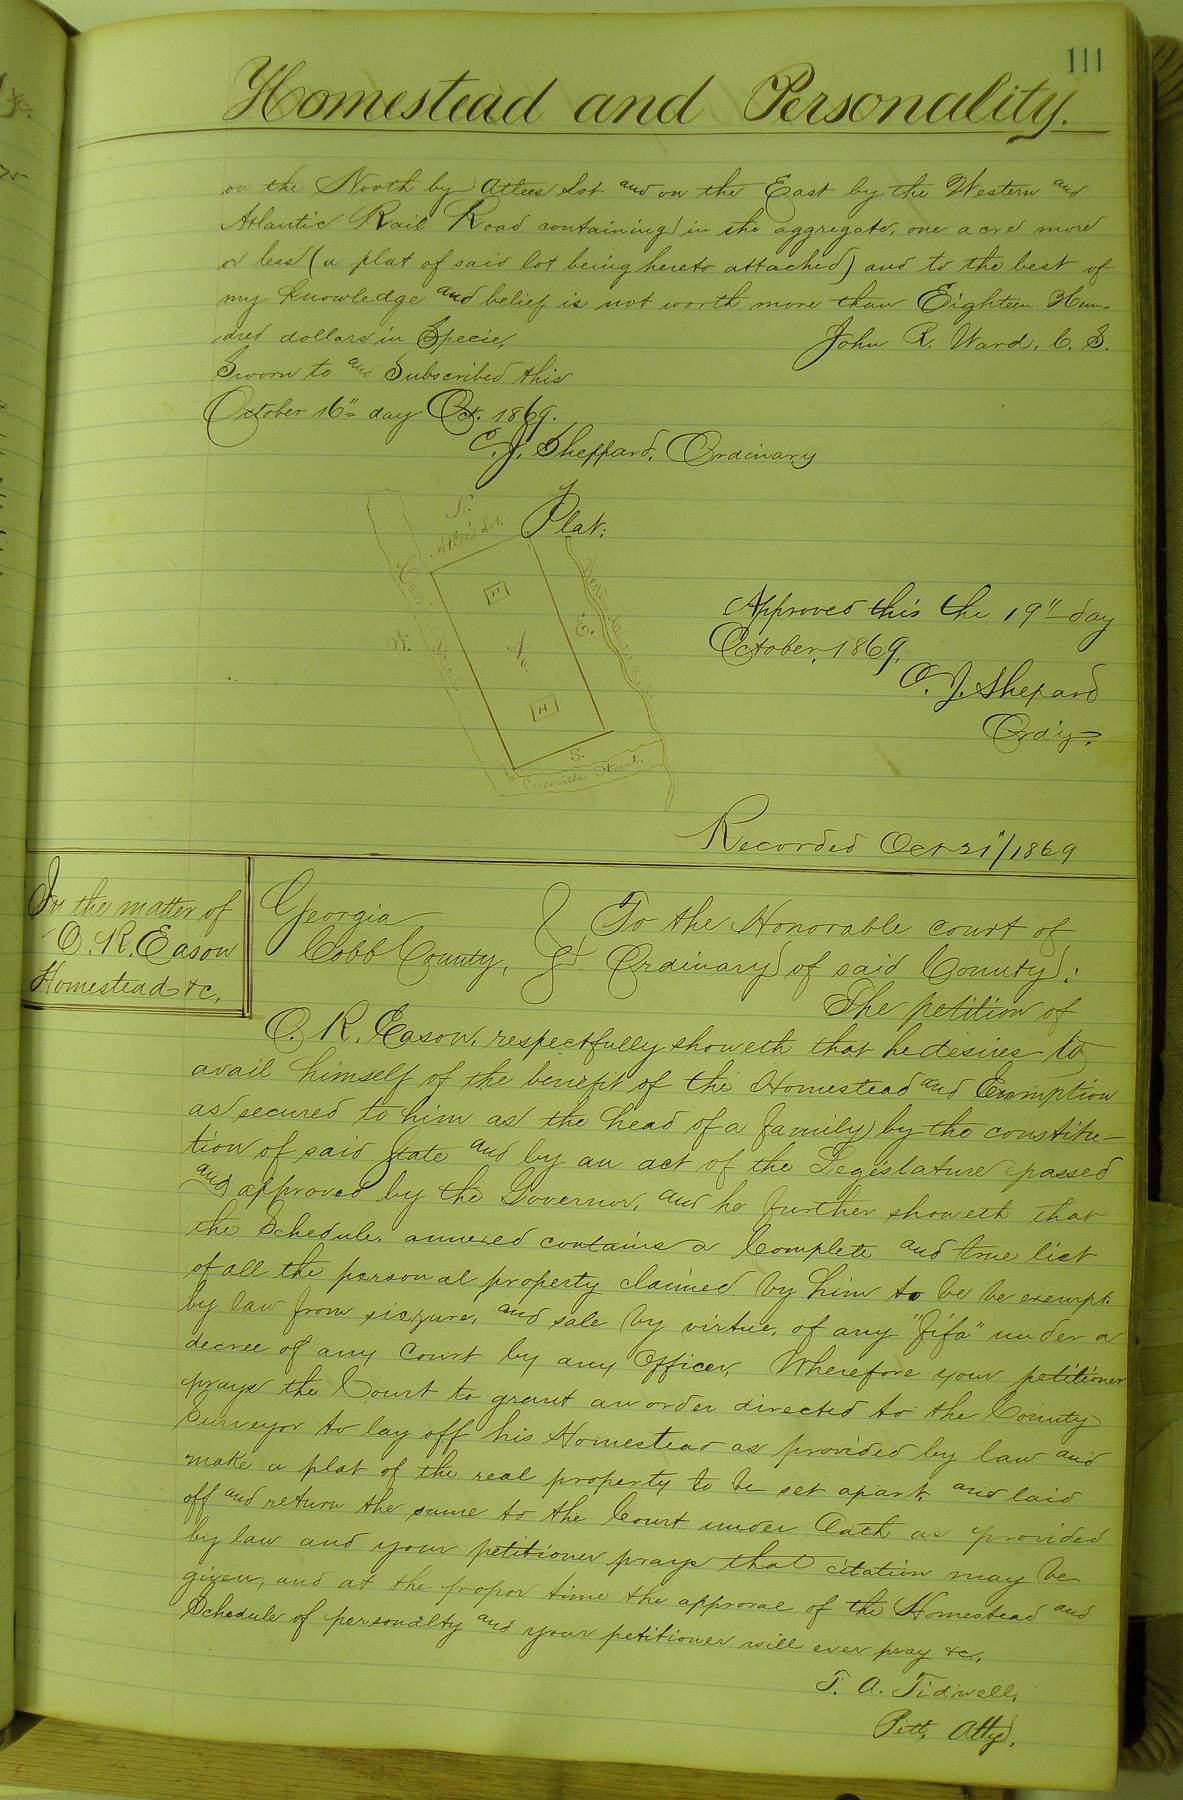 111
Homestead and Personality.
on the North by Atlees Lot and on the East by the Western and
Atlantic Rail Road containing in the aggregate, one acre more
or less (a plat of said lot being hereto attached) and to the best of
my knowledge and belief is not worth more than Eighteen Hun-
dred dollars in Specie.
John R. Ward. C. S.
Sworn to and Subscribed this
October 16" day Oct. 1869.
C. J. Sheppard. Ordinary
Plat.
N.
Atlee's Lot.
H
E.
No
W.
H
S.
Cassville Street.
Approved this the 19" day
October, 1869.
C. J. Shepard
Ord'y.
Recorded Oct 21"/1869
In the matter of
O. R. Eason
Homestead &c.
Georgia
Cobb County.
To the Honorable court of
Ordinary of said County:
The petition of
O. R. Eason, respectfully showeth that he desires to
avail himself of the benefit of the Homestead and Exemption
as secured to him as the head of a family by the constitu-
tion of said State and by an act of the Legislature passed
and approved by the Governor, and he further showeth that
the Schedule annexed contains a Complete and true list
of all the personal property claimed by him to be be exempt
by law from siezure, and sale by virtue, of any "fifa" under a
decree of any Court by any Officer, Wherefore your petitioner
prays the Court to grant an order directed to the County
Surveyor to lay off his Homestead as provided by law and
make a plat of the real property to be set apart, and laid
off and return the same to the Court under Oath as provided
by law and your petitioner prays that citation may be
given, and at the propor time the approval of the Homestead and
Schedule of personalty and your petitioner will ever pray &c.
T. A. Tidwell.
Pett. Atty.